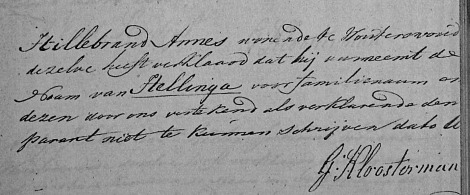 Hillebrand Annes wonende te Wouterswoud
dezelve heeft verklaard dat hij aanneemt de
Naam van Stellinga voor familienaam en
dezen door ons vertekend als verklarende den
parant niet te kunnen schrijven dato U
G: Kloosterman